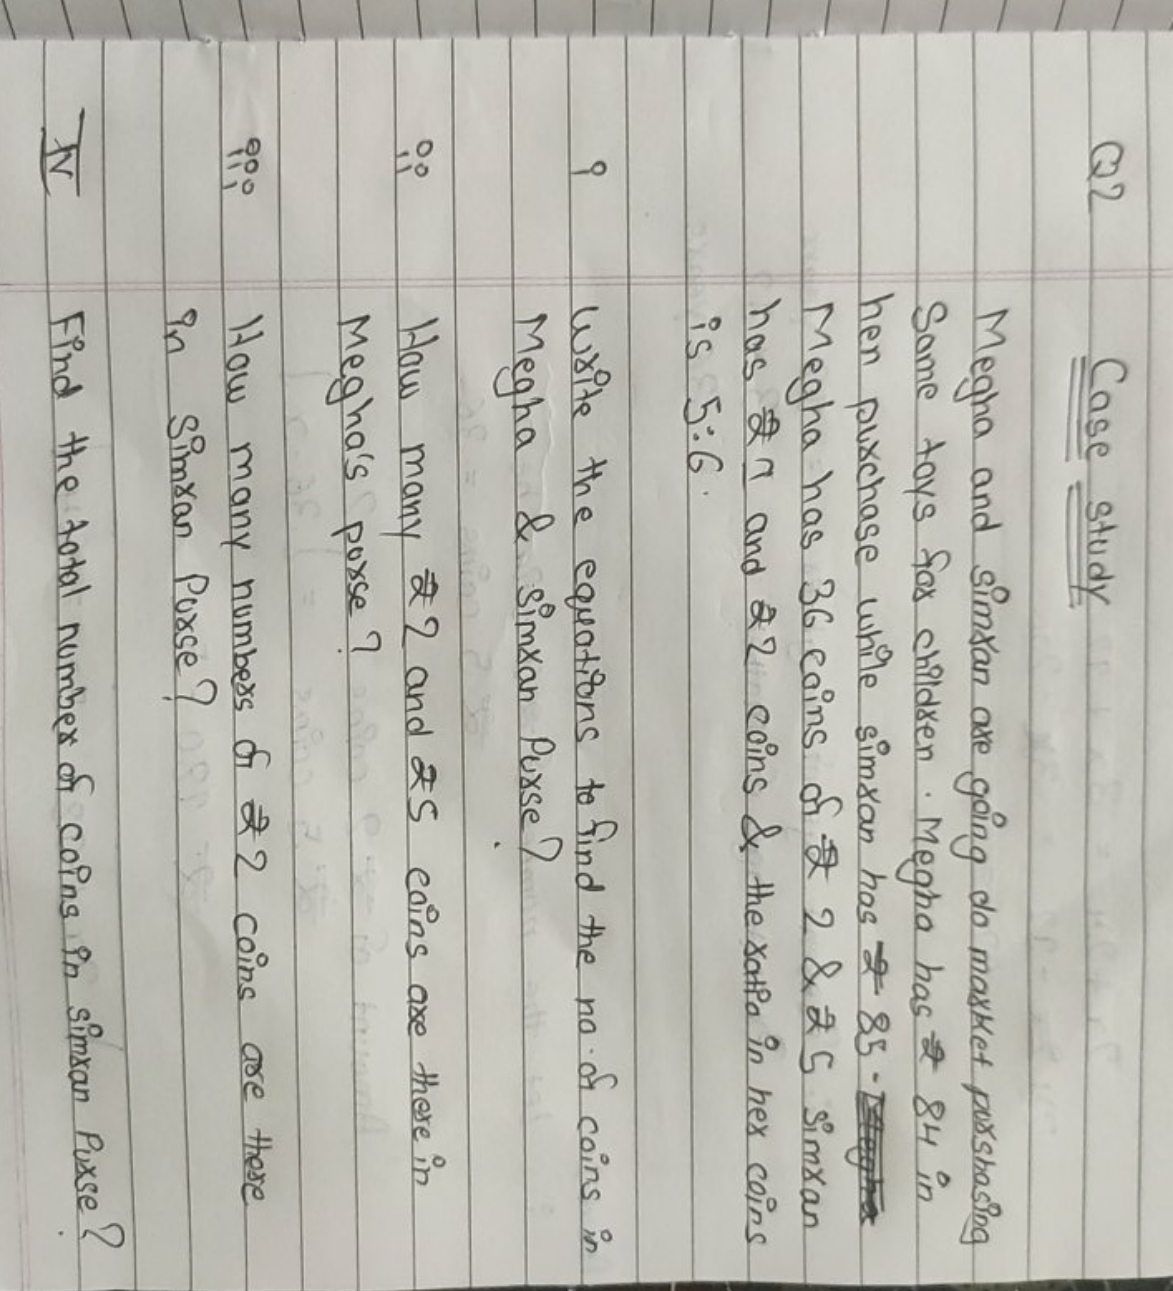 Q2 Case study
Megha and simran are going do market purshasing
Some toys for children. Megha has ₹ 84 in
her purchase while simran has ₹ 85.
Megha has 36 coins of ₹ 2 & ₹ 5 simran
has ₹ 1 and ₹ 2 coins & the ratio in her coins
is 5:6.
i Write the equations to find the no. of coins in
Megha & simran Purse?
ii How many ₹ 2 and ₹ 5 coins are there in
Megha's purse?
iii How many numbers of ₹ 2 coins are there
in simran Purse?
IV Find the total number of coins in simran Purse?